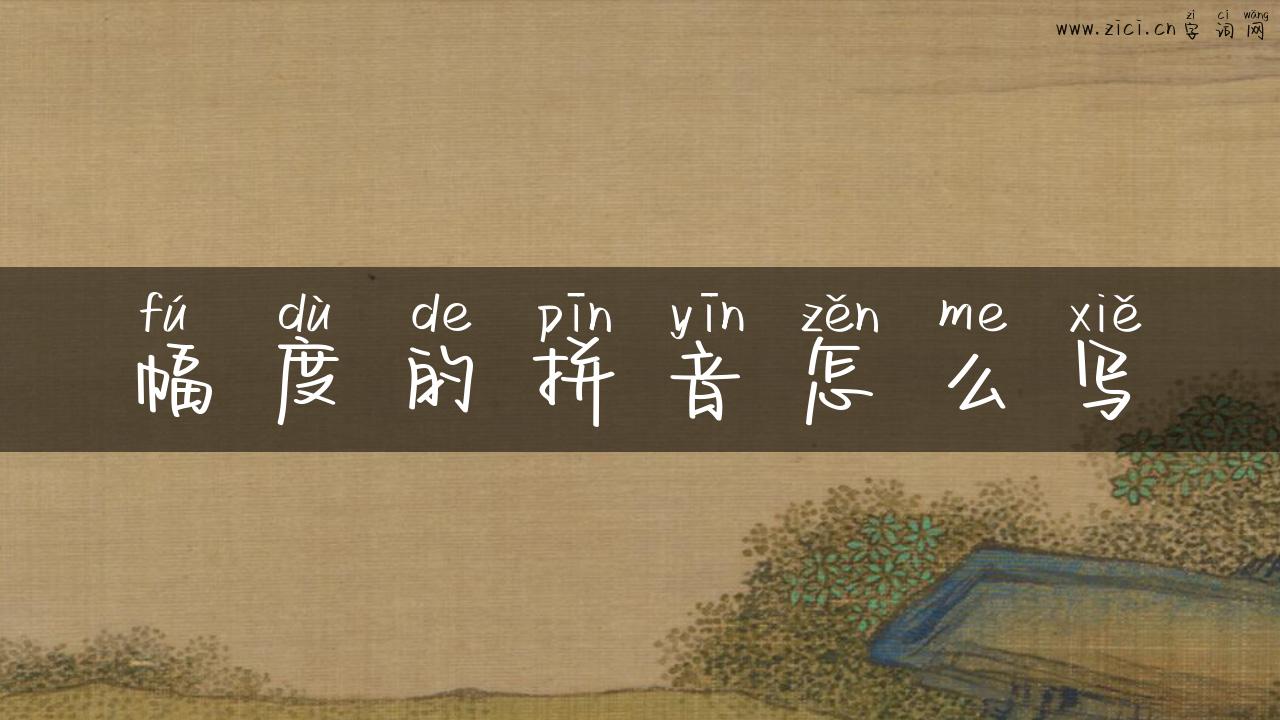 zì cí wǎng
www.zici.cn 字词网
fú dù de pīn yīn zěn me xiě
幅度的拼音怎么写